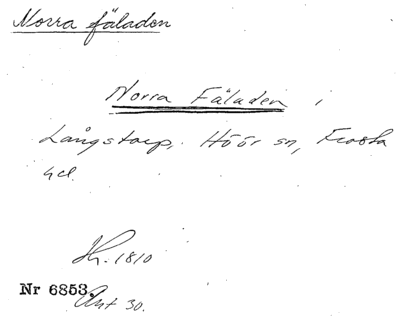 Norra fäladen
Norra Fäladen i
Långstorp, Höör sn, Frosta
hd.
Hr. 1810
Nr 6853.
Akt 30.